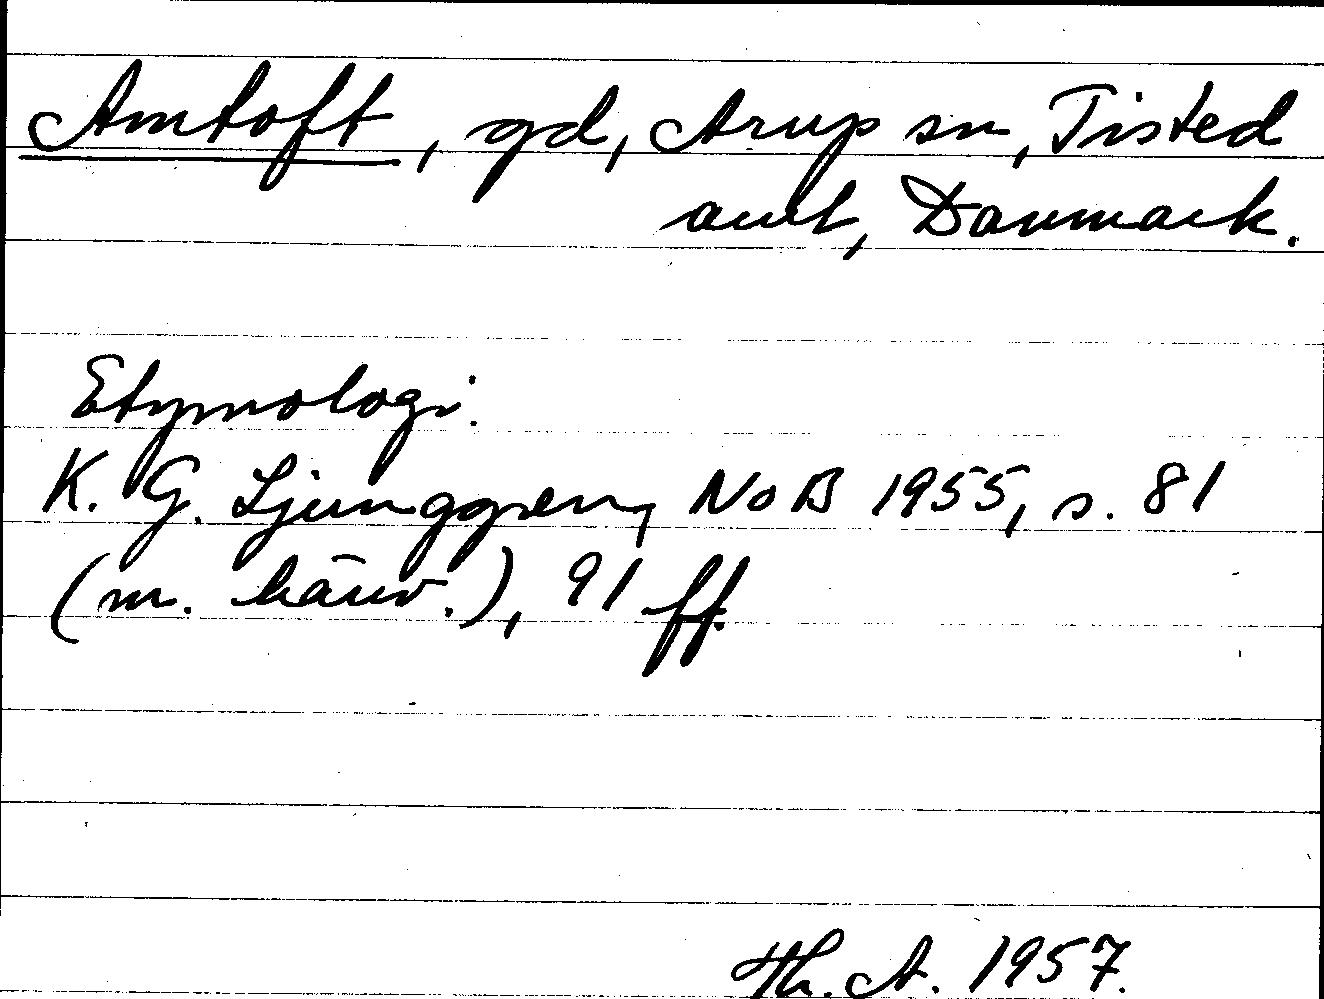 Amtoft, gd, Arup sn, Tisted
amt, Danmark.
Etymologi.
K. G. Ljunggren, NoB 1955, s. 81
(m. hänv.), 91 ff.
Th. A. 1957.